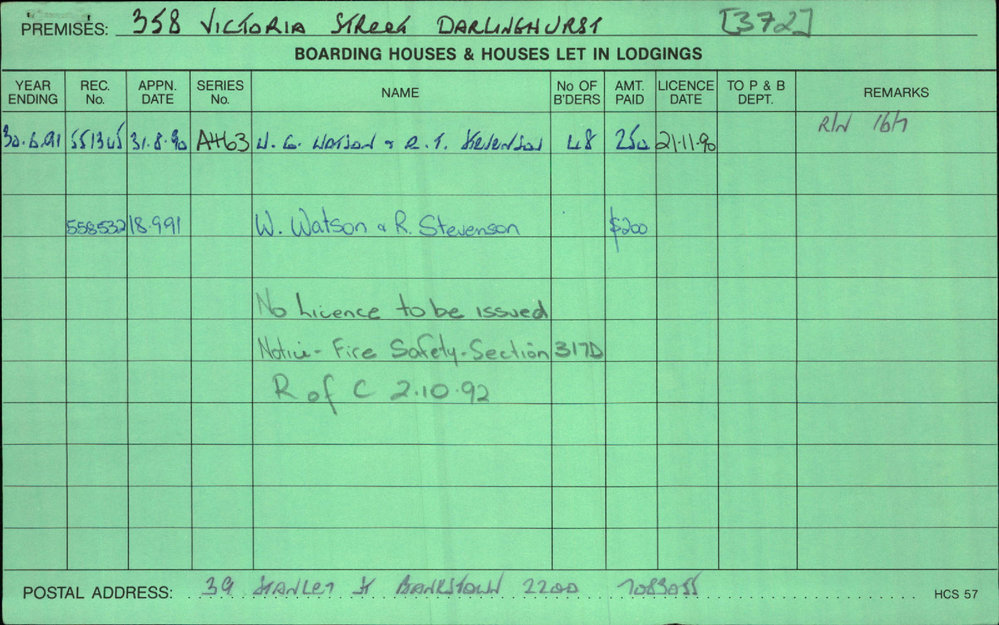 PREMISES: 358 VICTORIA STREET DARLINGHURST [372]
BOARDING HOUSES & HOUSES LET IN LODGINGS
YEAR ENDING REC. No. APPN. DATE SERIES No. NAME No OF B'DERS AMT. PAID LICENCE DATE TO P & B DEPT. REMARKS
30.6.91 551345 31.8.90 AH63 W. G. WATSON & R. T. STEVENSON 48 250 21.11.90 R/W 16/7
558532 18.9.91 W. Watson & R. Stevenson $200
No Licence to be issued
Notice - Fire Safety - Section 317D
R of C 2.10.92
POSTAL ADDRESS: 39 STANLEY ST BANKSTOWN 2200 7083055
HCS 57